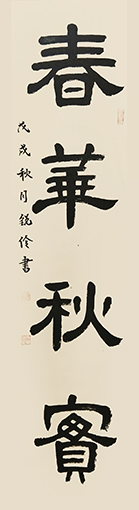 春華秋實
戊戌秋月锐伶書